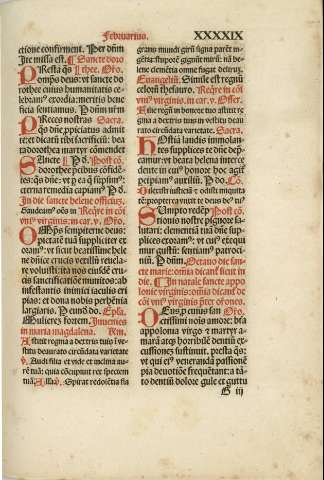 Februarius. XXXXIX
ctione confirment. Per dñm
Ite missa est. ¶ Sancte doro
PResta q̃s thee. Oro.
omps deus: vt sancte do
rothee cuius humanitatis ce-
lebram⁹ exordia: meritis bene
ficia sentiam⁹. P dñm nr̃m
PReces nostras Sacra.
q̃s dñe ppiciatus admit
te: et dicati tibi sacrificiũ: bea
ta dorothea martyr cõmendet
SAncte P d. Post cõ.
dorothee pcibus cõfidẽ-
tes: q̃s dñe: vt p ea q̃ sũpsim⁹:
eterna remedia capiam⁹ P d.
In die sancte helene officiũ,
Gaudeam⁹ oẽs in Req̃re in cõi
vni⁹ virginis. in car. v. Oro.
OMps sempiterne deus:
pietatẽ tuã suppliciter ex
oram⁹: vt sicut beatissimẽ hele
nẽ dñice crucis vexillũ reuela-
re voluisti: ita nos eiusdẽ cru-
cis sanctificatiõe munitos: ab
infestantis inimici iaculis eri
pias: et dona nobis perhẽnia
largiaris. P eunõ do. Epla.
Mulierẽ fortem. Inuenies
in maria magdalena. Rm̃.
Astitit regina a dextris tuis ĩ ve-
stitu deaurato circũdata varietate
v. Audi filia et vide et inclina au-
rẽ tuã: quia cõcupiuit rex speciem
tuã. Alla v. Spirat redolẽtia sta
granis mundi girũ signa parẽt in-
gẽtia: stuporẽ gignũt mirũ: nã he-
lene clemẽtia omne fugat delirũ.
Euangeliũ. Simile est regnũ
celorũ thesauro. Req̃re in cõi
vni⁹ virginis. in car. v. Offer.
Filie regũ in honore tuo astitit re
gina a dextris tuis in vestitu deau
rato circũdata varietate. Sacra.
HOstiã laudis immolan-
tes supplices te dñe dep
camur: vt beata helena interce
dente in eius honore hoc agat
p̃cipium⁹ auxiliũ. P dñ. Cõ.
Dilexisti iusticiã et odisti iniqtatẽ
pterea vnxit te deus deus tu⁹
SUmpto redẽp Post cõ.
ctionis nostre pignore sa-
lutari: clementiã tuã dñe sup
plices exoram⁹: vt cui⁹ exequi
mur gustũ: sentiam⁹ patroci-
niũ. P dñm. Octauo die san
cte marie: omnia dicãt sicut in
die. ¶ In natale sancte appo
lonie virginis: omnia dicãt de
cõi vni⁹ virginis pter orones.
DEus, p cuius san Oro.
ctissimi nois amore: btã
appolonia virgo ⁊ martyr a-
marã atq; horribilẽ dentiũ ex-
cussionẽs sustinuit. presta q̃s:
vt qui ei⁹ venerandã passionẽ
pia deuotiõe frequẽtant: a tã-
to dentiũ dolore gule et guttu
G iij